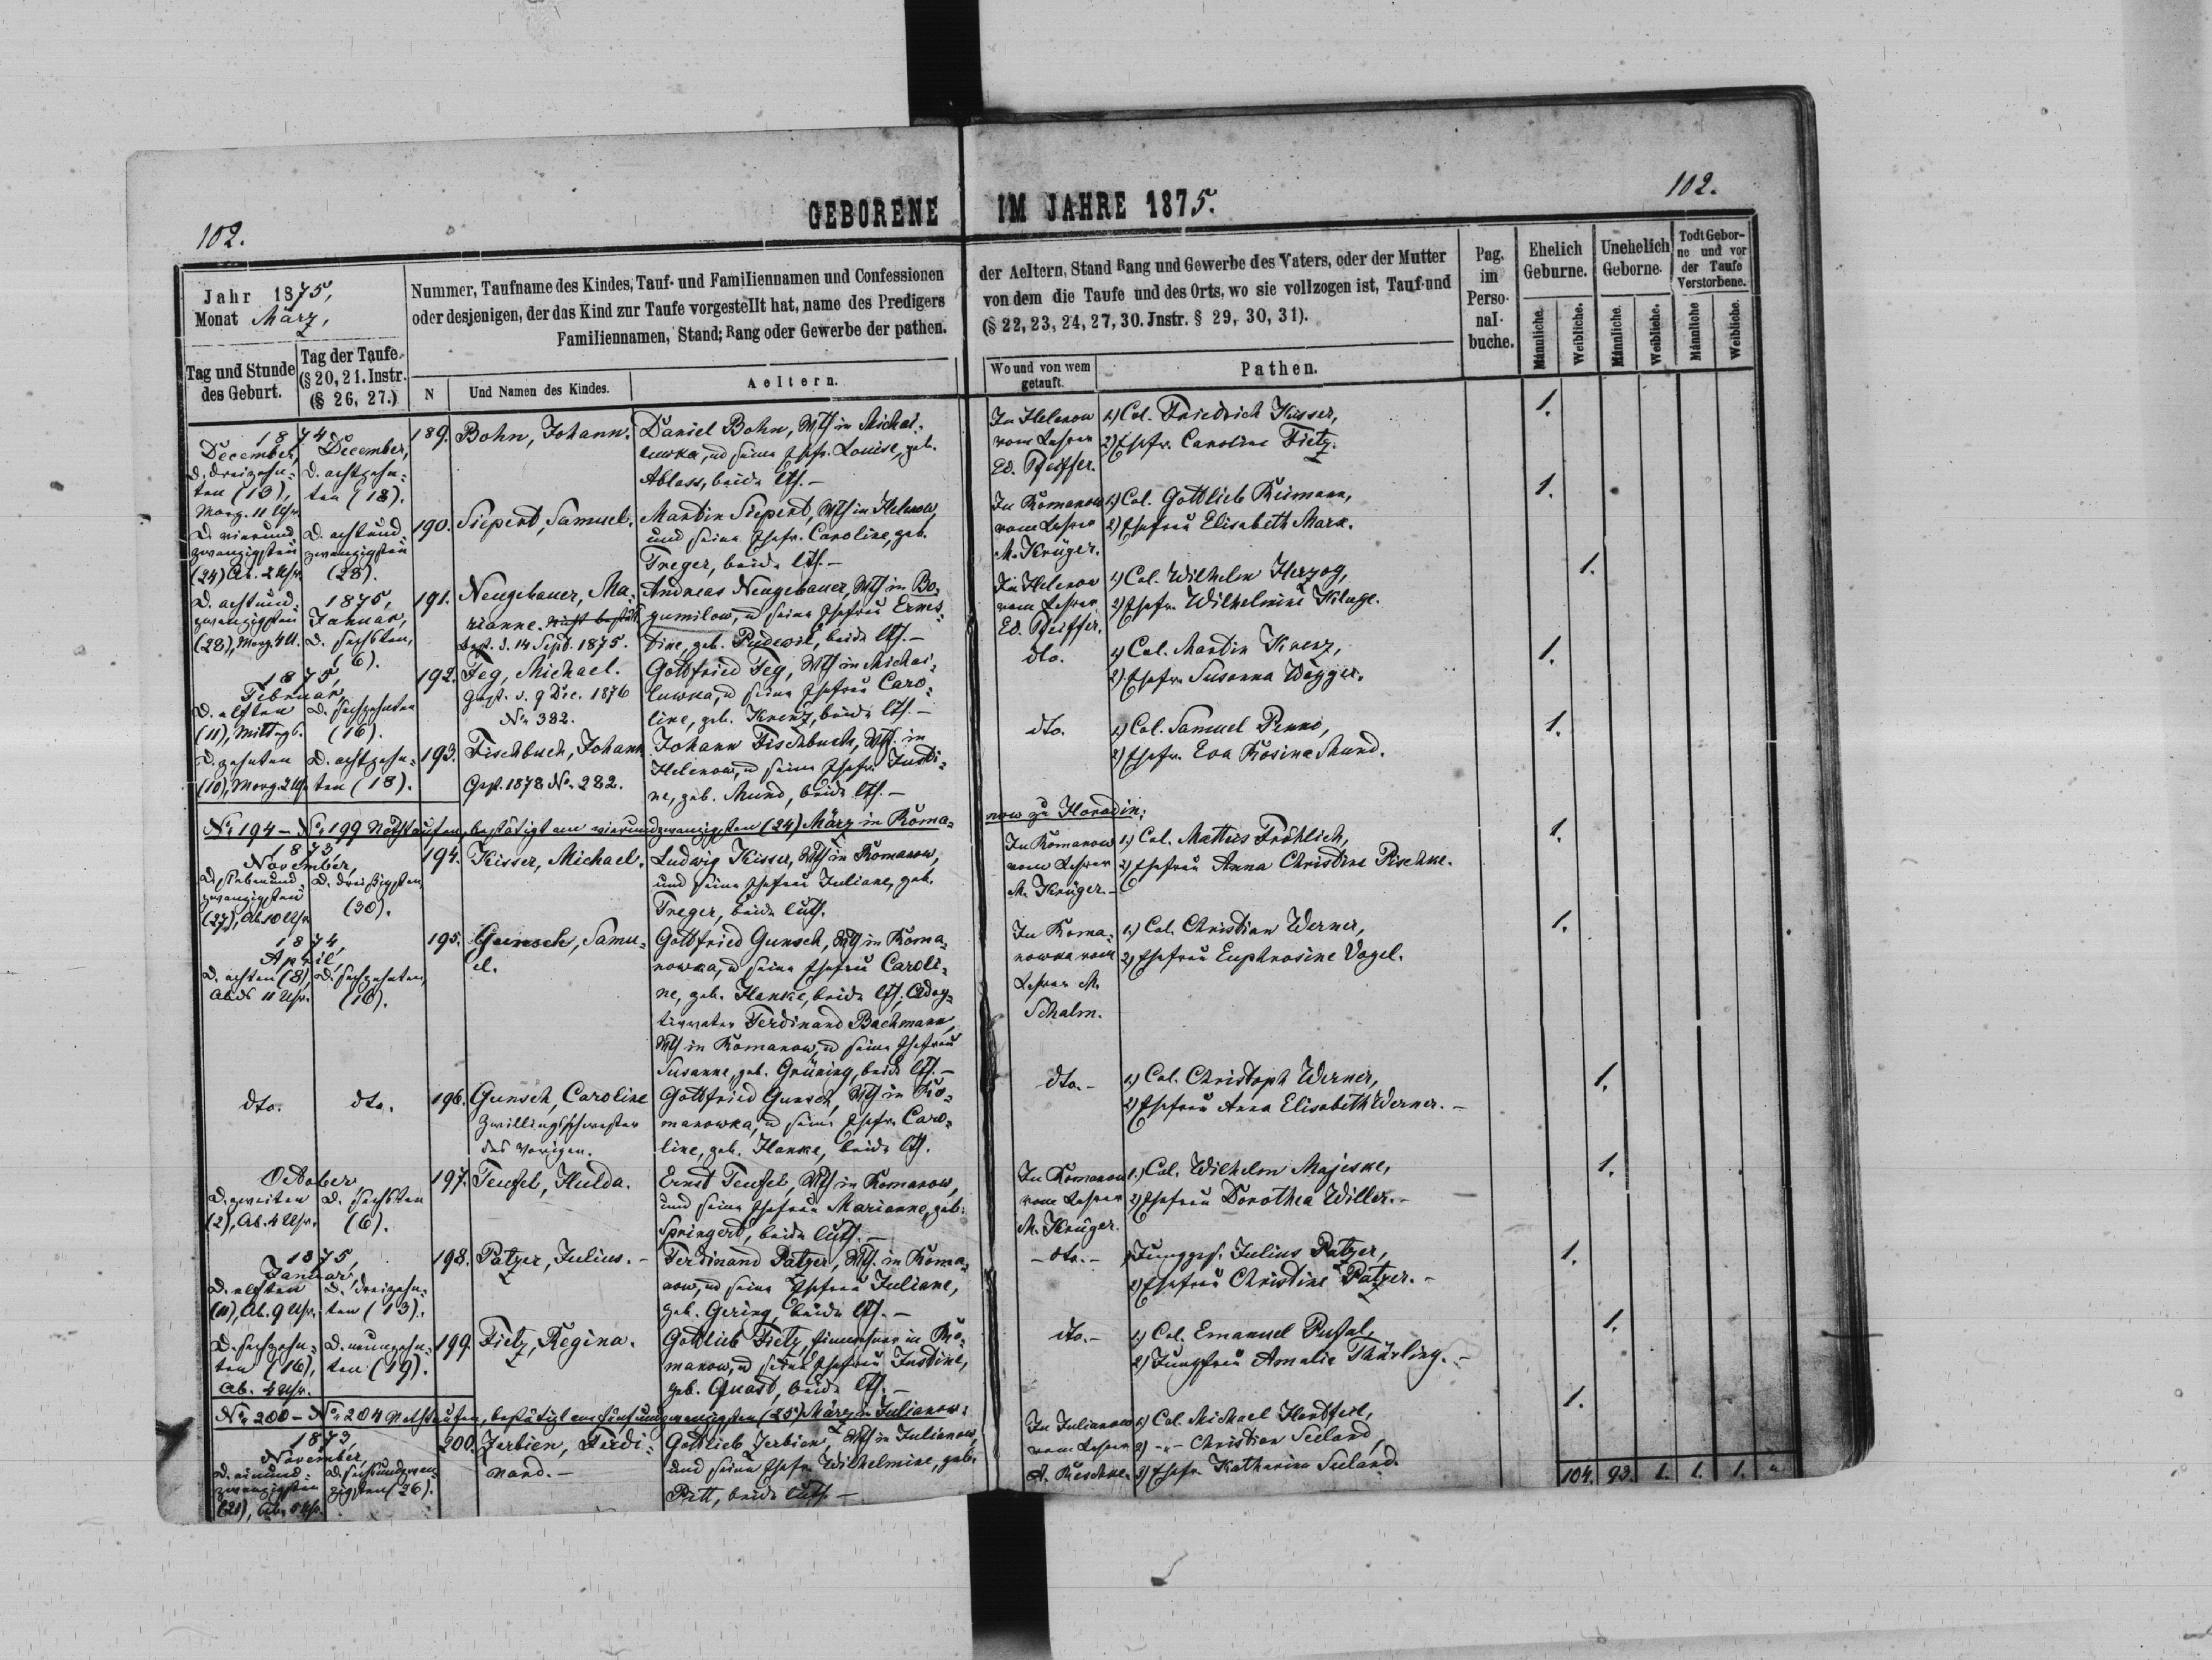 102.
GEBORENE IM JAHRE 1875.
102.
Jahr 1875,
Monat März,
Tag und Stunde
des Geburt.
Tag der Taufe
(§ 20, 21. Instr.
(§ 26, 27.)
Nummer, Taufname des Kindes, Tauf- und Familiennamen und Confessionen
oder desjenigen, der das Kind zur Taufe vorgestellt hat, name des Predigers
Familiennamen, Stand; Rang oder Gewerbe der pathen.
N
Und Namen des Kindes.
Aeltern.
der Aeltern, Stand Rang und Gewerbe des Vaters, oder der Mutter
von dem die Taufe und des Orts, wo sie vollzogen ist, Tauf-und
(§ 22, 23, 24, 27, 30. Jnstr. § 29, 30, 31).
Wo und von wem
getauft.
Pathen.
Pag.
im
Perso-
nal-
buche.
Ehelich
Geburne.
Unehelich
Geborne.
Todt Gebor-
ne und vor
der Taufe
Verstorbene.
Männliche.
Weibliche.
Männliche.
Weibliche.
Männliche
Weibliche.
1874
December,
d. dreizehn-
ten (13),
Morg. 11 Uhr.
December,
d. achtzehn-
ten (18).
189. Bohn, Johann.
Daniel Bohn, Wth in Michai-
luwka, u seine Ehefr. Louise, geb.
Ablass, beide lth. –
In Helenow
vom Lehrer
Ed. Pfeiffer.
1) Col. Friedrich Küsser,
2) Ehefr. Caroline Fietz.
1.
D. vierund-
zwanzigsten
(24) Ab. 2 Uhr.
D. achtund-
zwanzigsten
(28).
190. Siepert, Samuel.
Martin Siepert, Wth in Helenow,
und seine Ehefr. Caroline, geb.
Treger, beide lth. –
In Romanow
vom Lehrer
M. Krüger.
1) Col. Gottlieb Reimann,
2) Ehefrau Elisabeth Marx.
1.
D. achtund-
zwanzigsten
(28), Morg. 4 U.
1875,
Januar,
D. sechsten,
(6).
191. Neugebauer, Ma-
rianne. nicht bestät
Best. d. 14 Sept. 1875.
Andreas Neugebauer, Wth in Bo-
gumilow, u seine Ehefrau Ernes-
tine, geb. Pudewil, beide lth. –
In Helenow
vom Lehrer
Ed. Pfeiffer.
1) Col. Wilhelm Herzog,
2) Ehefr. Wilhelmine Kluge.
1.
1875,
Februar,
D. elften
(11), Mittags.
D. sechzehnten
(16).
192. Feg, Michael.
Gest. d. 9 Dec. 1876
No 382.
Gottfried Feg, Wth in Michai-
luwka, u seine Ehefrau Caro-
line, geb. Krenz, beide lth. –
dto.
1) Col. Martin Krenz,
2) Ehefr. Susanna Wegger.
1.
D. zehnten
(10), Morg. 2 Uhr
D. achtzehn-
ten (18).
193. Fischbuch, Johann
Gest. 1878 No. 282.
Johann Fischbuch, Wth. in
Helenow, u seine Ehefr. Justi-
ne, geb. Mund, beide lth. –
dto.
1) Col. Samuel Penno,
2) Ehefr. Eva Rosina Mund.
1.
No 194 – No 199 Nothtaufen, bestätigt am vierundzwanzigsten (24) März in Roma-
now zu Horodin:
1873,
November,
D. siebenund-
zwanzigsten
(27), Ab. 10 Uhr
D. dreißigsten,
(30).
194. Kisser, Michael.
Ludwig Kisser, Wth in Romanow,
und seine Ehefrau Juliane, geb.
Treger, beide luth.
In Romanow
vom Lehrer
M. Krüger. –
1.) Col. Matheis Fröhlich,
2) Ehefrau Anna Christine Pischke.
1.
1874,
April,
D. achten (8),
Abds 11 Uhr.
D. sechzehnten,
(16).
195. Gunsch, Samu-
el.
Gottfried Gunsch, Wth in Roma-
nowka, u seine Ehefrau Caroli-
ne, geb. Hanke, beide lth; Adop-
tivvater Ferdinand Bachmann,
Wth in Romanow, u seine Ehefrau
Susanne, geb. Grüning, beide lth. –
In Roma-
nowka vom
Lehrer M.
Schalm.
1.) Col. Christian Werner,
2) Ehefrau Euphrosine Vogel.
1.
dto.
dto.
196. Gunsch, Caroline
Zwillingsschwester
des vorigen.
Gottfried Gunsch, Wth in Ro-
manowka, u seine Ehefr. Caro-
line, geb. Hanke, beide lth.
dto. –
1) Col. Christoph Werner,
2) Ehefrau Anna Elisabeth Werner. –
1.
October
D. zweiten
(2), Ab. 4 Uhr.
D. sechsten
(6).
197. Teufel, Hulda.
Ernst Teufel, Wth in Romanow,
und seine Ehefrau Marianne, geb.
Springert, beide luth. –
In Romanow
vom Lehrer
M. Krüger.
1.) Col. Wilhelm Majeske,
2) Ehefrau Dorothea Willer. –
1.
1875,
Januar,
D. elften
(11), Ab. 9 Uhr.
D. dreizehn-
ten (13).
198. Patzer, Julius. –
Ferdinand Patzer, Wth. in Roma-
now, u seine Ehefrau Juliane,
geb. Gering, beide lth. –
– dto. –
1) Junggs. Julius Patzer,
2) Ehefrau Christine Patzer. –
1.
D. sechzehn-
ten (16),
Ab. 4 Uhr.
D. neunzehn-
ten (19).
199. Fietz, Regina.
Gottlieb Fietz, Einwohner in Ro-
manow, u seine Ehefrau Justine,
geb. Quast, beide lth. –
dto. –
1) Col. Emanuel Pufal,
2) Jungfrau Amalie Thürling. –
1.
No 200 – No 204 Nothtaufen, bestätigt am fünfundzwanzigsten (25) März in Julianow:
1873,
November,
D. einund-
zwanzigsten
(21), Ab. 5 Uhr.
D. sechsundzwan-
zigsten (26).
200. Zerbien, Ferdi-
nand. –
Gottlieb Zerbien, Wth in Julianow,
und seine Ehefr. Wilhelmine, geb.
Pett, beide luth. –
In Julianow
vom Lehrer
A. Reschke.
1) Col. Michael Hartfeil,
2) –„– Christian Seeland,
3) Ehefr. Katharina Seeland.
1.
104. 93. 1. 1. 1. „